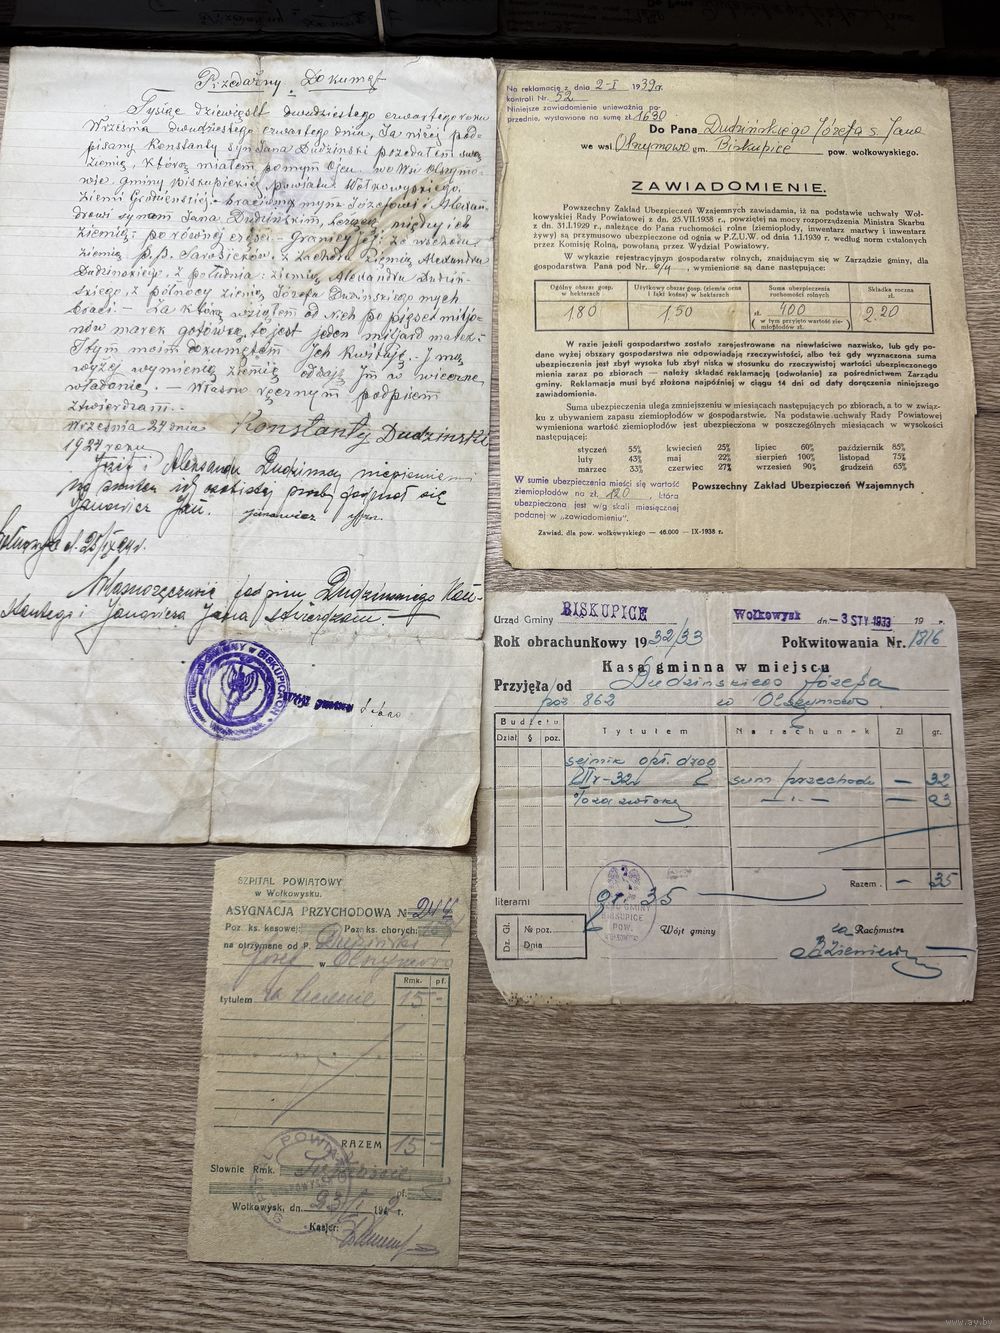 Przedażny Dokumęt
Tysiąc dziewięslt dwudziestego czwartego roku
Wrzesnia dwudziestego czwartego dnia, Ja niżej pod-
pisany Konstanty syn Jana Dudzinski
ziemię Którą miałem pomym Ojcu we Wsi Olszymo-
wie gminy Biskupickiej powiatu Wołkowyskiego,
Ziemi Grodzienskiej braciom mym Józefowi i Aleksan-
drowi synam Jana Dudzinskim
ziemią: po równej części Granicy jej: ze wschodu
ziemią p.p. z zachodu Ziemią Alexandra
Dudzinskiego, z południa: ziemią Alexandra Dudziń-
skiego, z północy ziemią Józefa Dudzinskiego mych
braci Za którą wziąłem od nich po pięćset miljo-
nów marek gotówką to jest jeden miljard marek
Tym moim dokumętem Ich kwituję. I mą
wyżej wymienioną ziemię oddają Im w wieczne
władanie. Własno ręcznym podpisem
stwierdzam.
Września 24 dnia Konstanty Dudzinski
1924 roku
Józef i Aleksander Dudzinscy niepiśmienni
na skutek ich osobistej prosby podpisał się
Janowicz Jan.
Własnoręczność podpisu Dudzinskiego Kon-
stantego i Janowicza Jana stwierdzam.
Na reklamację z dnia 2-I 1939 r.
kontroli Nr. 52
Niniejsze zawiadomienie unieważnia po-
przednie, wystawione na sumę zł. 1630
Do Pana Dudzińskiego Józefa s. Jana
we wsi Olszymowo gm. Biskupice pow. wołkowyskiego.
ZAWIADOMIENIE.
Powszechny Zakład Ubezpieczeń Wzajemnych zawiadamia, iż na podstawie uchwały Woł-
kowyskiej Rady Powiatowej z dn. 25.VII.1938 r., powziętej na mocy rozporządzenia Ministra Skarbu
z dn. 31.I.1929 r., należące do Pana ruchomości rolne (ziemiopłody, inwentarz martwy i inwentarz
żywy) są przymusowo ubezpieczone od ognia w P.Z.U.W. od dnia 1.I.1939 r. według norm ustalonych
przez Komisję Rolną, powołaną przez Wydział Powiatowy.
W wykazie rejestracyjnym gospodarstw rolnych, znajdującym się w Zarządzie gminy, dla
gospodarstwa Pana pod Nr. 6/4, wymienione są dane następujące:
Ogólny obszar gosp. w hektarach
Użytkowy obszar gosp. (ziemia orna i łąki kośne) w hektarach
Suma ubezpieczenia ruchomości rolnych
Składka roczna zł.
180 1,50 zł. 400 2.20
(w tym przyjęto wartość ziemiopłodów zł. )
W razie jeżeli gospodarstwo zostało zarejestrowane na niewłaściwe nazwisko, lub gdy po-
dane wyżej obszary gospodarstwa nie odpowiadają rzeczywistości, albo też gdy wyznaczona suma
ubezpieczenia jest zbyt wysoka lub zbyt niska w stosunku do rzeczywistej wartości ubezpieczonego
mienia zaraz po zbiorach — należy składać reklamację (odwołanie) za pośrednictwem Zarządu
gminy. Reklamacja musi być złożona najpóźniej w ciągu 14 dni od daty doręczenia niniejszego
zawiadomienia.
Suma ubezpieczenia ulega zmniejszeniu w miesiącach następujących po zbiorach, a to w związ-
ku z ubywaniem zapasu ziemiopłodów w gospodarstwie. Na podstawie uchwały Rady Powiatowej
wymieniona wartość ziemiopłodów jest ubezpieczona w poszczególnych miesiącach w wysokości
następującej:
styczeń 55% kwiecień 25% lipiec 60% październik 85%
luty 43% maj 22% sierpień 100% listopad 75%
marzec 33% czerwiec 27% wrzesień 90% grudzień 65%
W sumie ubezpieczenia mieści się wartość
ziemiopłodów na zł. 120, która
ubezpieczona jest w/g skali miesięcznej
podanej w „zawiadomieniu".
Powszechny Zakład Ubezpieczeń Wzajemnych
Zawiad. dla pow. wołkowyskiego — 46.000 — IX-1938 r.
Urząd Gminy BISKUPICE Wołkowysk dn. - 3 STY 1933 19 r.
Rok obrachunkowy 1932/33 Pokwitowania Nr. 1316
Kasa gminna w miejscu
Przyjęła od Dudzińskiego Józefa
poz 862 w Olszymowo
Budżetu Tytułem Na rachunek Zł gr.
Dział § poz.
sejmik opł. drog
III r-32 sum przechodn — 32
% za zwłokę — — 03
Razem — 35
literami gr. 35
Dz. Gł. № poz.
Dnia
Wójt gminy za Rachmistrz
URZĄD GMINY BISKUPICE POW. WOŁKOWYSKI
SZPITAL POWIATOWY
w Wołkowysku.
ASYGNACJA PRZYCHODOWA № 244
Poz. ks. kasowej Poz. ks. chorych:
na otrzymane od P. Dudziński
Józef w Olszymowo
Rmk. pf.
tytułem za leczenie 15 -
RAZEM 15 -
Słownie Rmk. Piętnaście
pf.
Wołkowysk, dn. 23/I 1942 r.
Kasjer:
www.ay.by